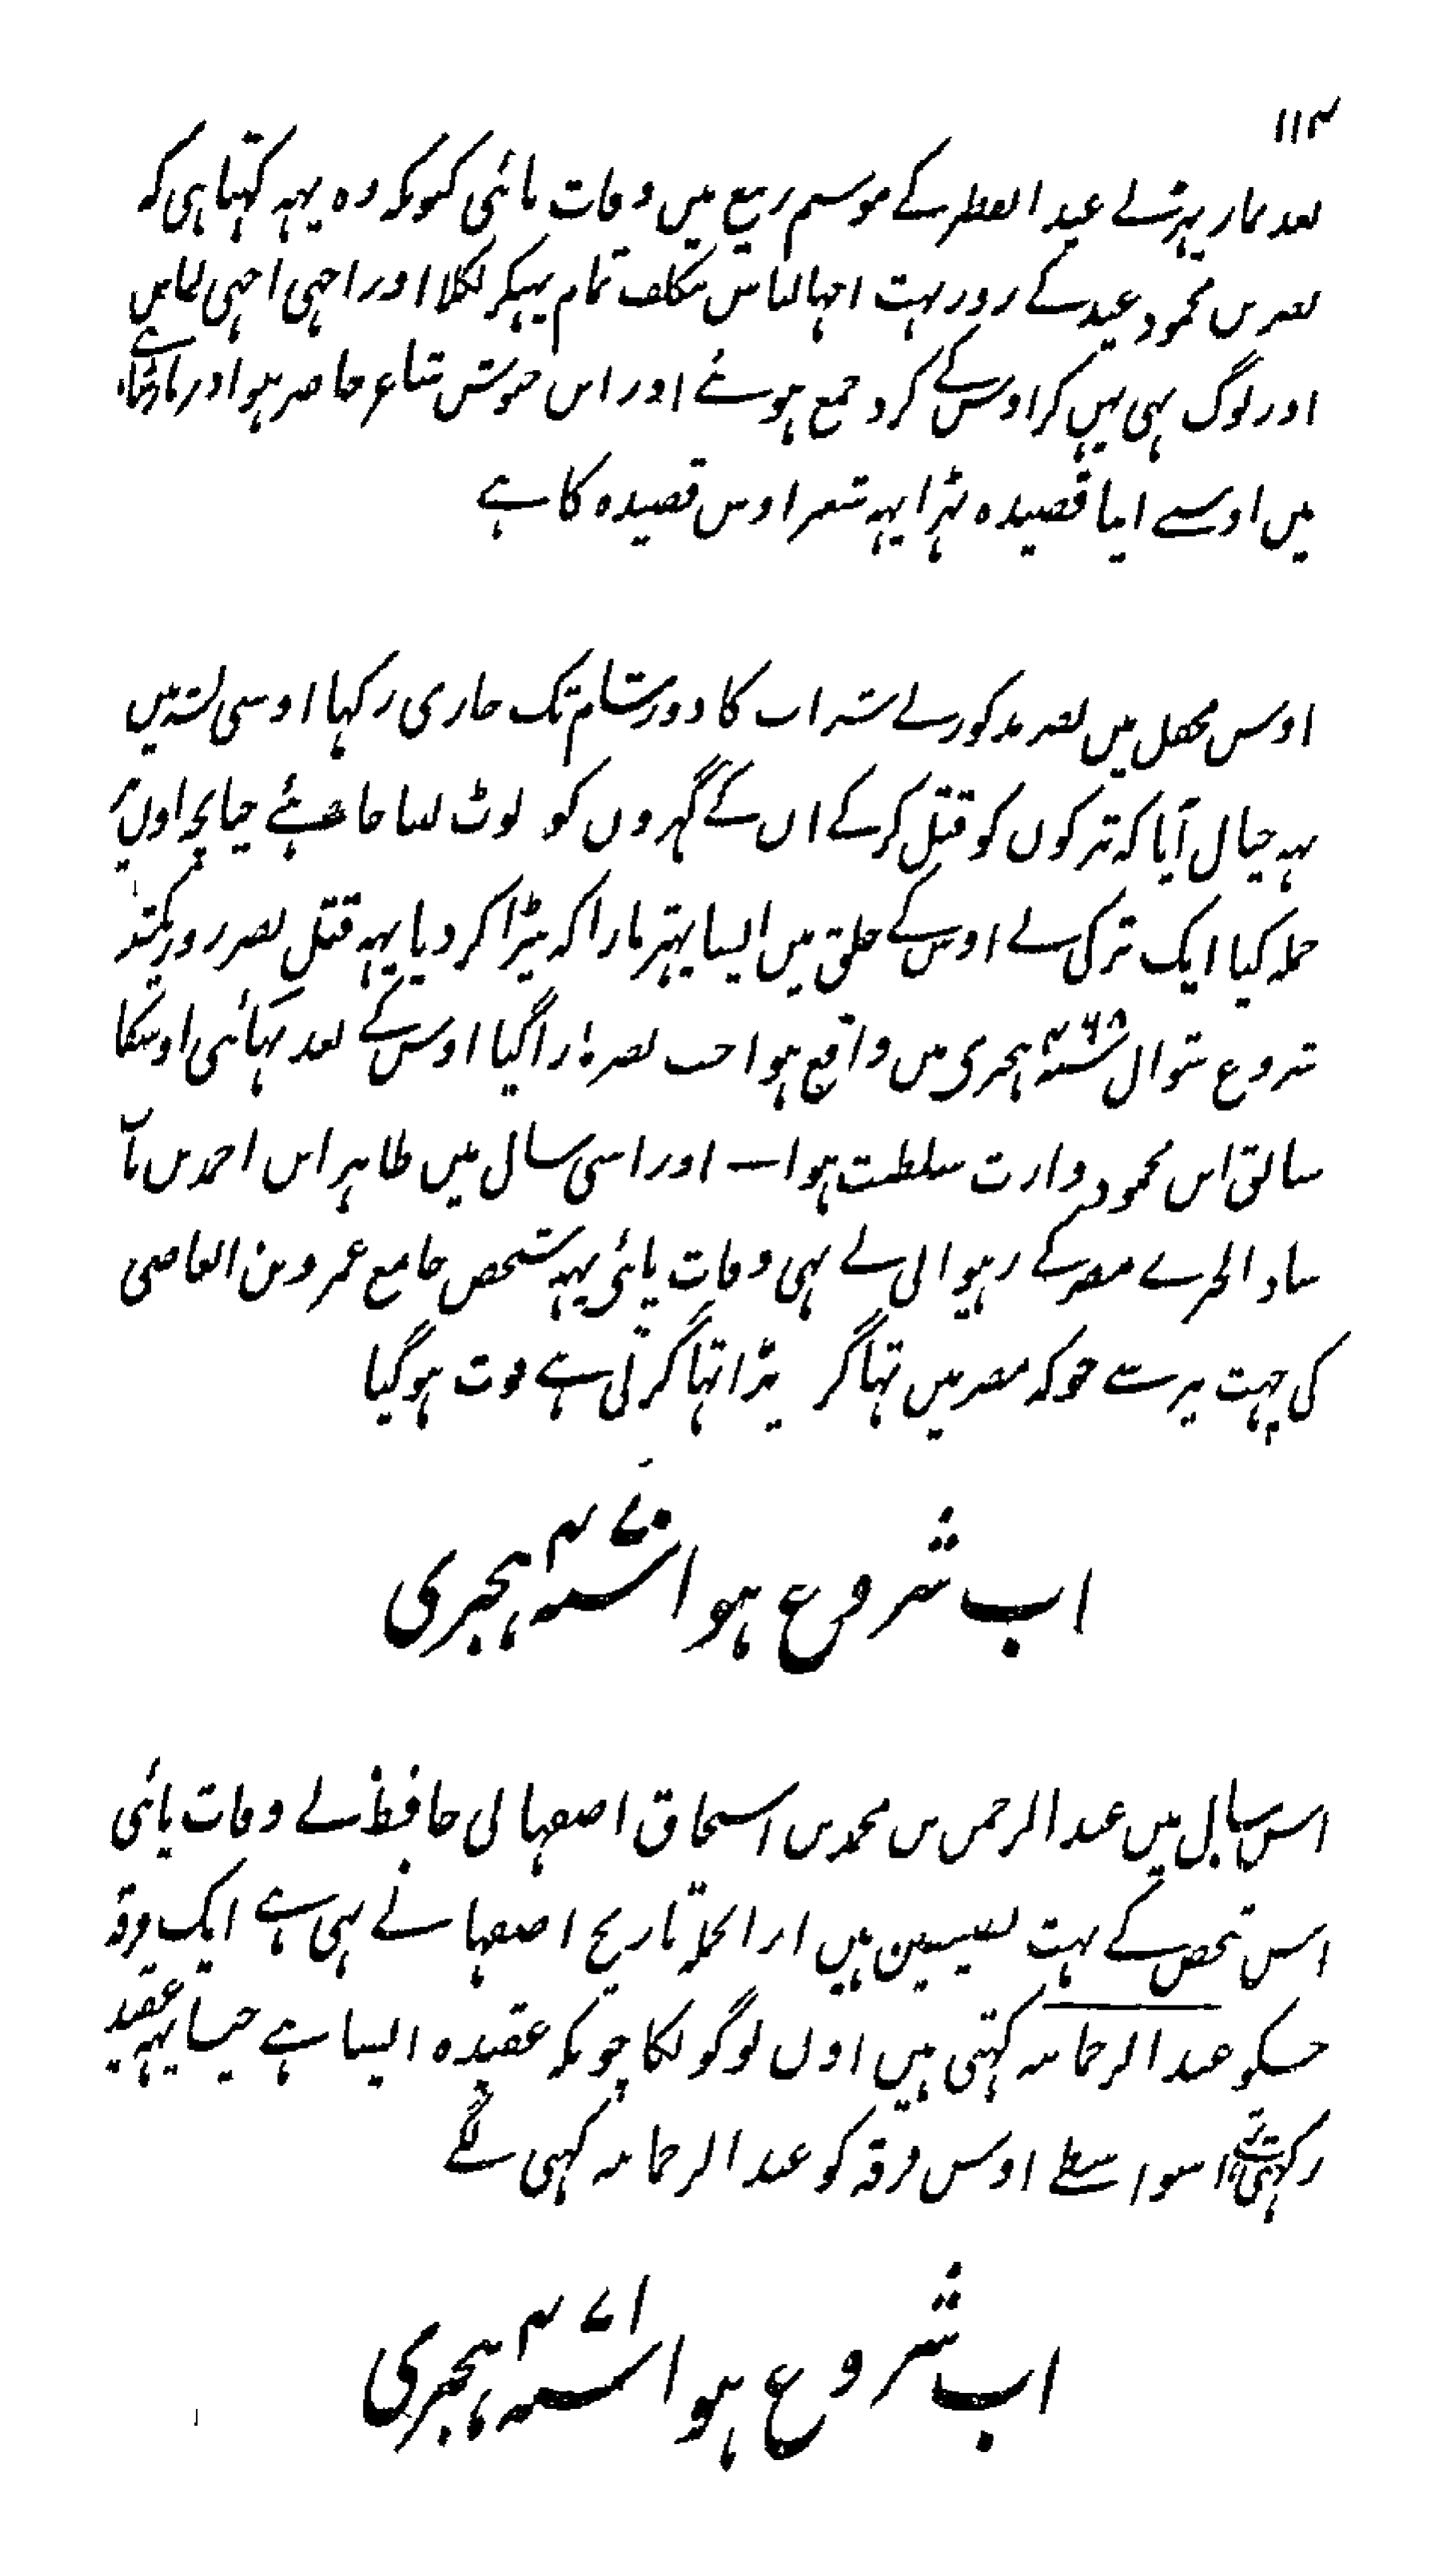 ۱۱۴
بعد نماز پڑہنے عید الفطر کے موسم ربیع میں وفات پائی کیونکہ وہ یہہ کہتا ہی کہ
نصر بن محمود عید کے روز بہت اچہا لباس مکلف تمام پہنکر نکلا اور اچہی اچہی لباس سے
اور لوگ بہی پہن کر اوس کے گرد جمع ہوئے اور ابن حیوش شاعر حاضر ہوا اور
میں اوسے اپنا قصیدہ پڑا یہہ شعر اوس قصیدہ کا ہے
اوس محفل میں نصر مذکور نے شراب کا دور شام تک جاری رکہا اوسی نشہ میں
یہہ خیال آیا کہ ترکوں کو قتل کر کے ان کے گہروں کو لوٹ لینا چاہئے چنانچہ اول
حملہ کیا ایک ترکی نے اوس کے حلق میں ایسا پتہر مارا کہ پڑا کر دیا یہہ قتل نصر روز یکشنبہ
شروع شوال سنہ ۴۶۸ ہجری میں واقع ہوا جب نصر مارا گیا اوس کے بعد بہائی اوسکا
سابق ابن محمود وارث سلطنت ہوا — اور اسی سال میں طاہر ابن احمد بن باب
شاد النحوے مصر کے رہنیوالی نے بہی وفات پائی یہہ شخص جامع عمرو بن العاصی
کی چہت پر سے جو کہ مصر میں تہا گر پڑا تہا گرتی ہے فوت ہو گیا
اب شروع ہوا سنہ ۴۷۰ ہجری
اس سال میں عبد الرحمن بن محمد بن اسحاق اصفہانی حافظ نے وفات پائی
اس شخص کے بہت تصنیفین ہیں ازانجملہ تاریخ اصفہانے بہی ہے ایک فرقہ
جسکو عبد الرحمانیہ کہتی ہیں اون لوگونکا چونکہ عقیدہ ایسا ہے جیسا یہہ عقیدہ
رکہتے اسواسطے اوس فرقہ کو عبد الرحمانیہ کہی گئے
اب شروع ہوا سنہ ۴۷۱ ہجری